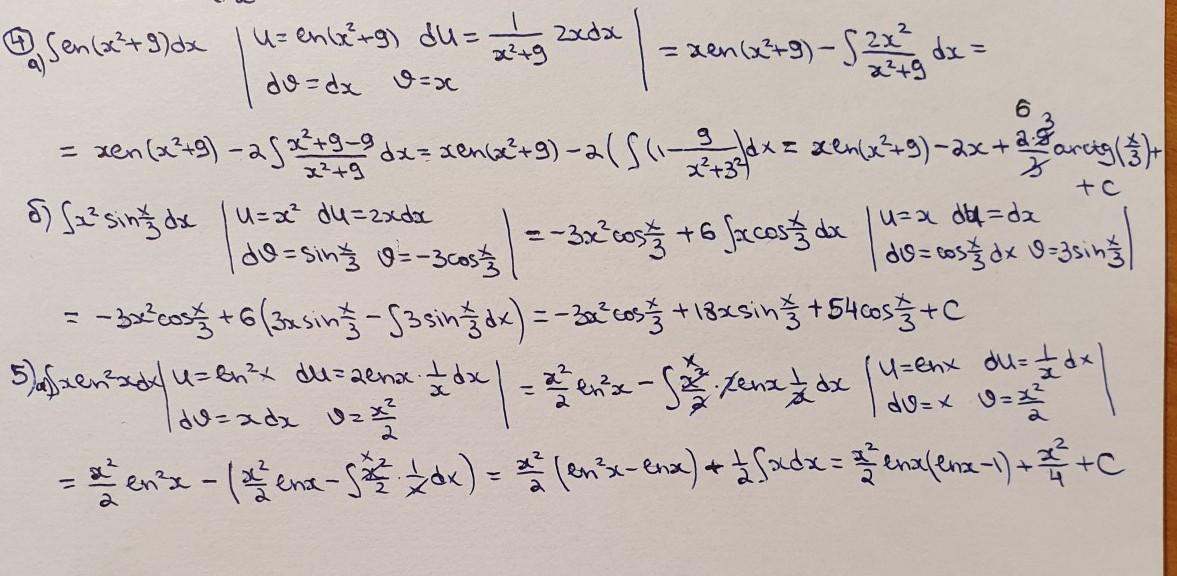 ④ а) ∫ln(x²+9)dx | u=ln(x²+9) du=1/(x²+9) 2xdx dv=dx v=x | = xln(x²+9) - ∫ 2x²/(x²+9) dx =
= xln(x²+9) - 2∫ (x²+9-9)/(x²+9) dx = xln(x²+9) - 2(∫(1- 9/(x²+3²))dx = xln(x²+9) - 2x + 2·9/3 6 3 arctg(x/3) + + C
б) ∫x² sin x/3 dx | u=x² du=2xdx dv=sin x/3 v=-3cos x/3 | = -3x² cos x/3 + 6 ∫xcos x/3 dx | u=x du=dx dv=cos x/3 dx v=3sin x/3 |
= -3x² cos x/3 + 6(3x sin x/3 - ∫3 sin x/3 dx) = -3x² cos x/3 + 18x sin x/3 + 54cos x/3 + C
5) а) ∫xln²xdx | u=ln²x du=2lnx · 1/x dx dv=xdx v=x²/2 | = x²/2 ln²x - ∫ x x²/2 · 2lnx 1/x dx | u=lnx du=1/x dx dv=x v=x²/2 |
= x²/2 ln²x - (x²/2 lnx - ∫ x x²/2 · 1/x dx) = x²/2 (ln²x - lnx) + 1/2 ∫xdx = x²/2 lnx(lnx-1) + x²/4 + C